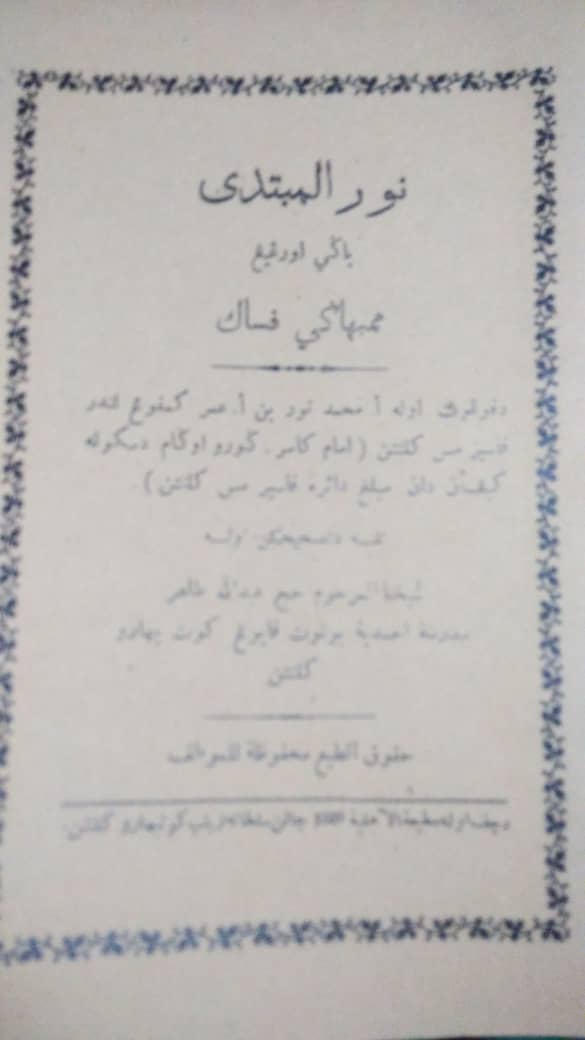 نور المبتدى
باݢي اورڠيڠ
ممبهاݢي ڤساک
دڤوڠوت اوله أ محمد نور بن أ. عمر كمڤوڠ
ڤاسير مس كلنتن (امام كامر، ݢورو اوݢام دسكوله
كبڠسأن دان دائره ڤاسير مس كلنتن).
تله دتصحيحكن اوله
شيخنا المرحوم حاج عبدالله طاهر
مدرسة احمدية بونوت ڤايوڠ كوت بهارو
كلنتن
حقوق الطبع محفوظة للمؤلف
دچيتق اوله مطبعة الأهلية جالن سلطانه زينب كوت بهارو كلنتن.